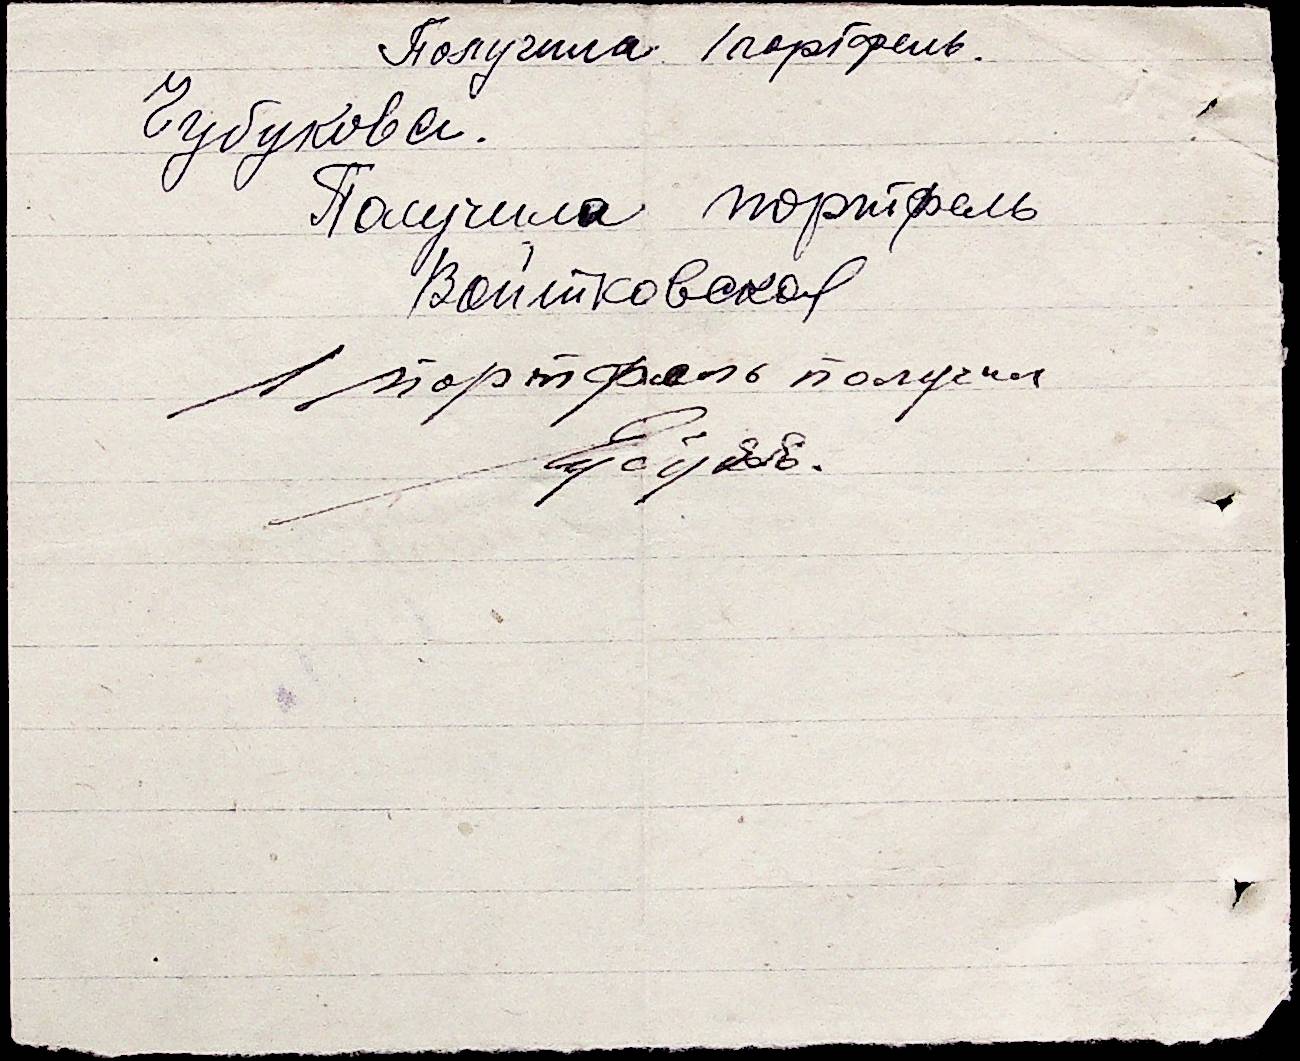 Получила 1 портфель.
Чубукова.
Получила портфель
Войтковская
1 портфель получил